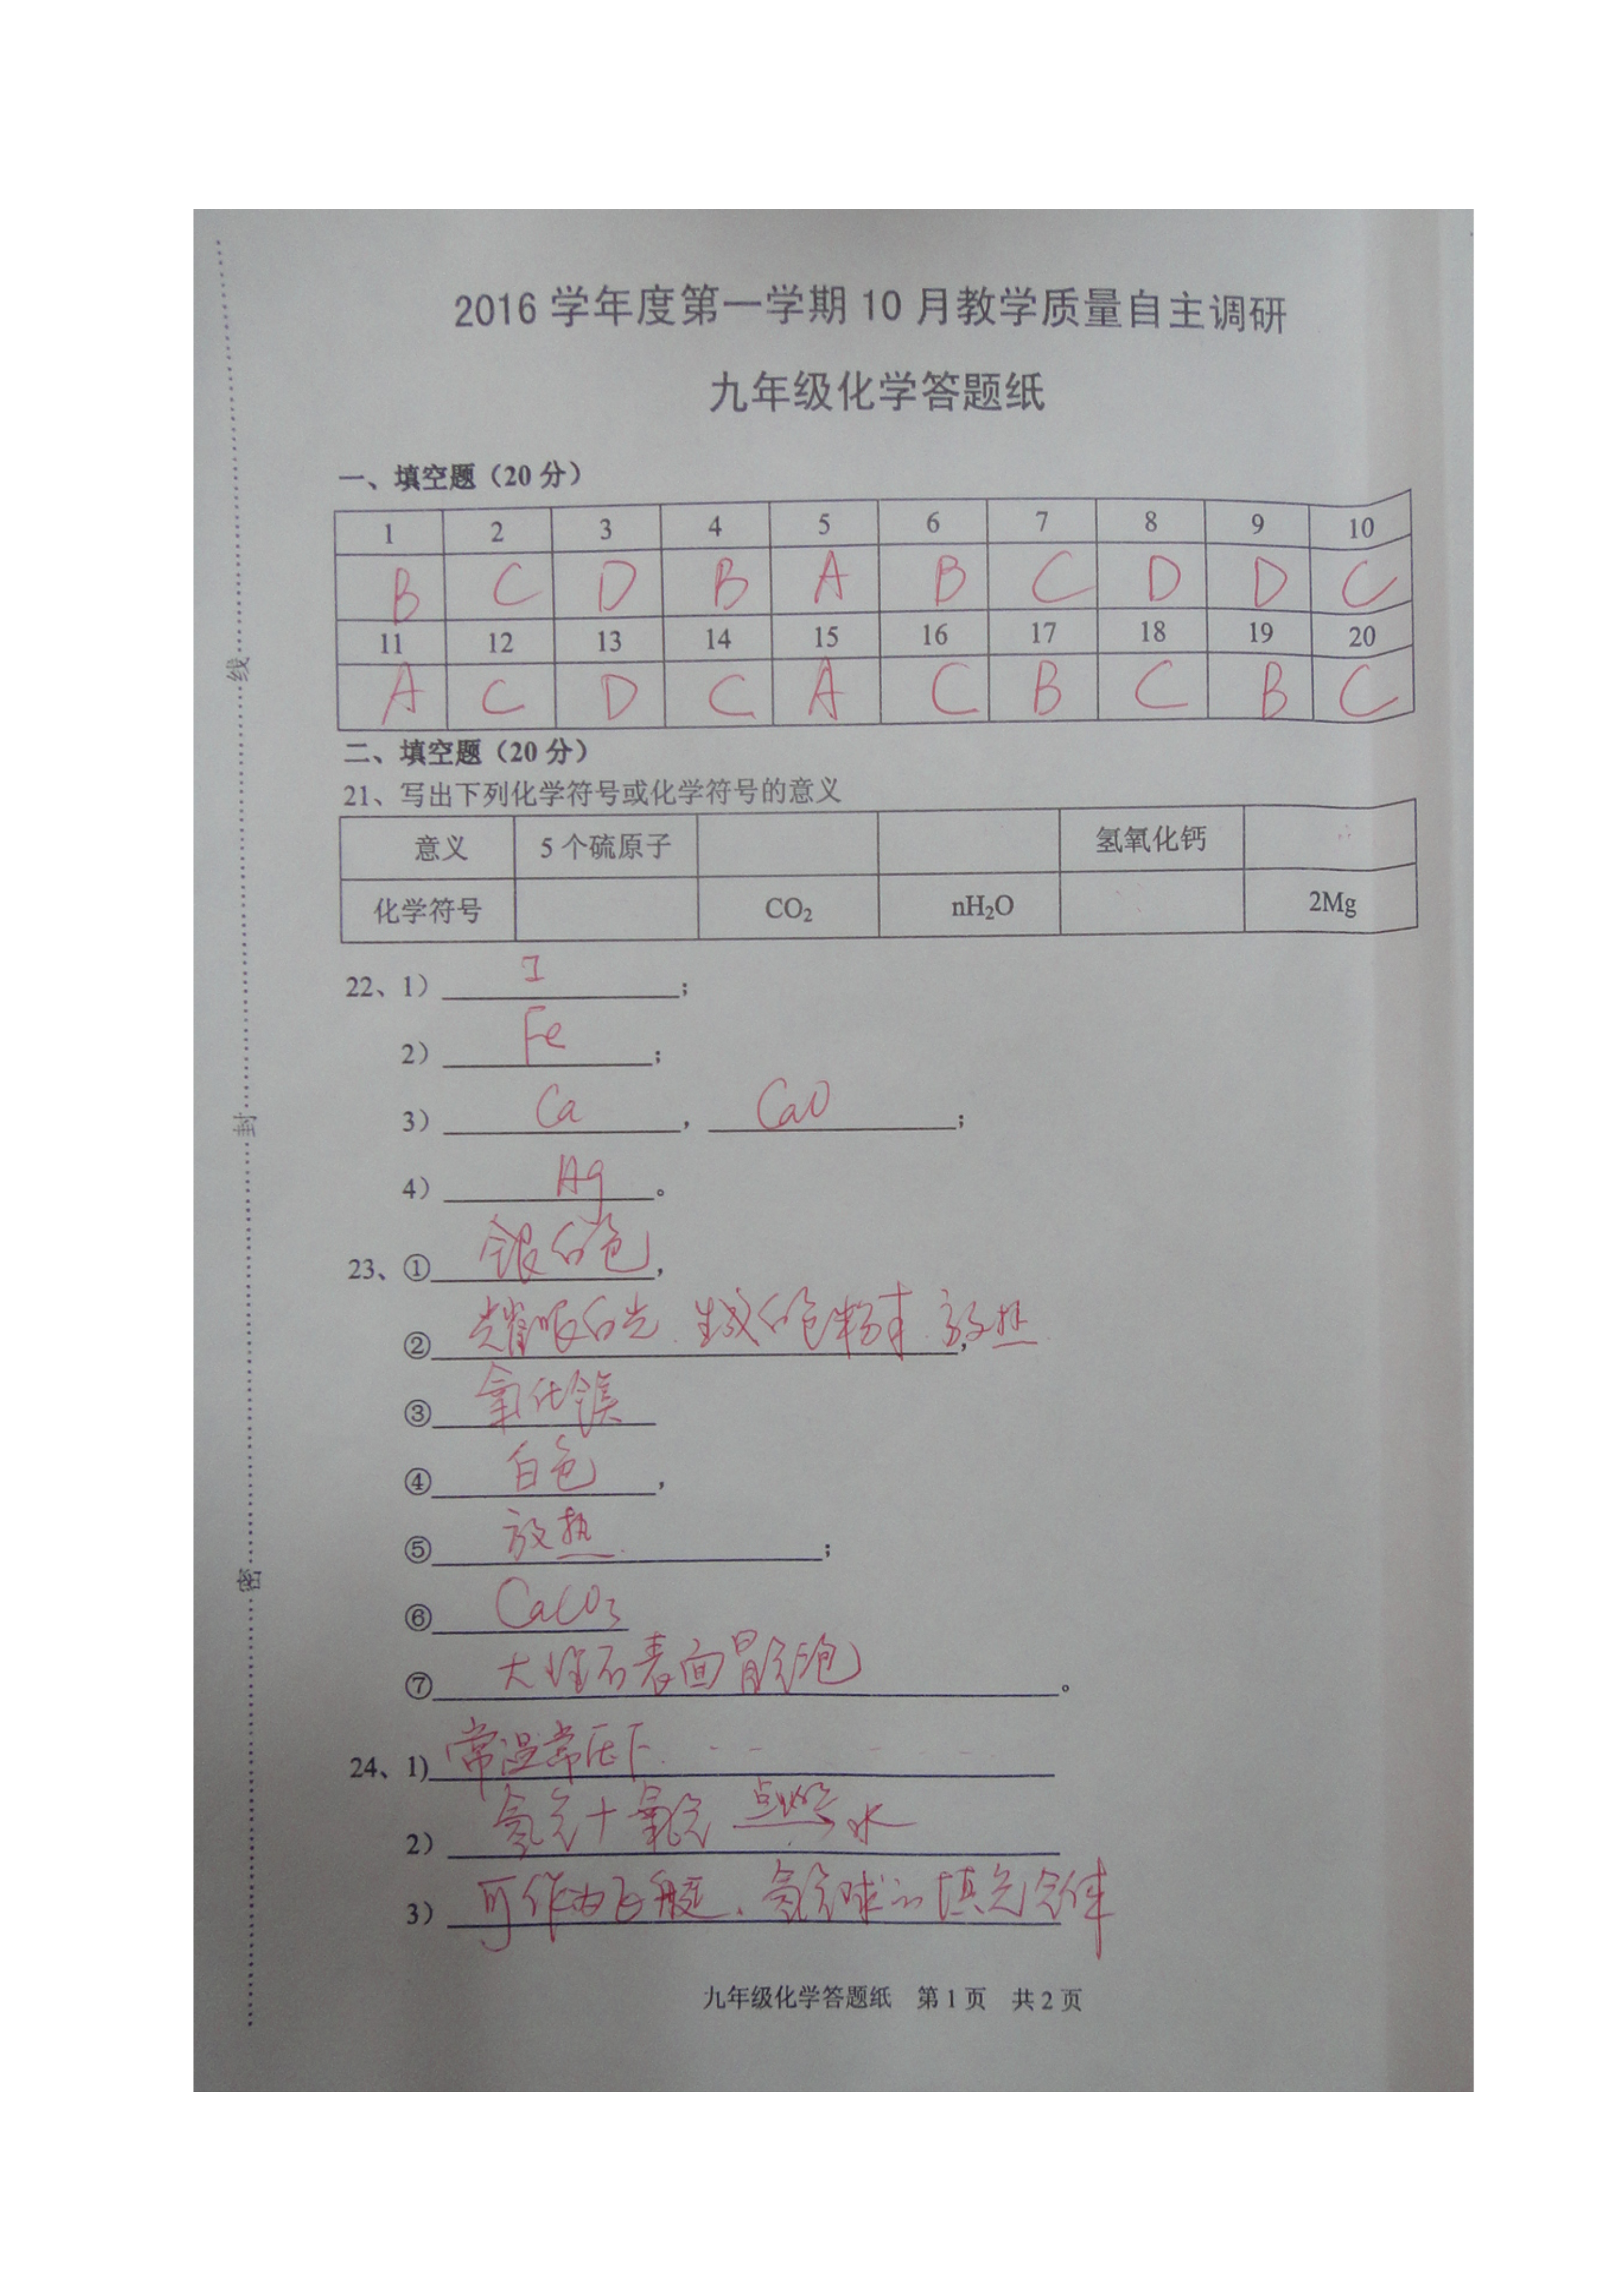 2016 学年度第一学期 10 月教学质量自主调研
九年级化学答题纸
一、填空题（20 分）
1 2 3 4 5 6 7 8 9 10
B C D B A B C D D C
11 12 13 14 15 16 17 18 19 20
A C D C A C B C B C
二、填空题（20 分）
21、写出下列化学符号或化学符号的意义
意义 5 个硫原子 氢氧化钙
化学符号 CO₂ nH₂O 2Mg
22、1） I ；
2） Fe ；
3） Ca ， CaO ；
4） Ag 。
23、① 银白色 ，
② 耀眼白光 生成白色粉末 放热 ，
③ 氧化镁
④ 白色 ，
⑤ 放热 ；
⑥ CaCO₃
⑦ 大理石表面冒气泡 。
24、1) 常温常压下
2） 氢气＋氧气 点燃 水
3） 可作为飞艇、氢气球的填充气体
九年级化学答题纸 第 1 页 共 2 页
线
封
密